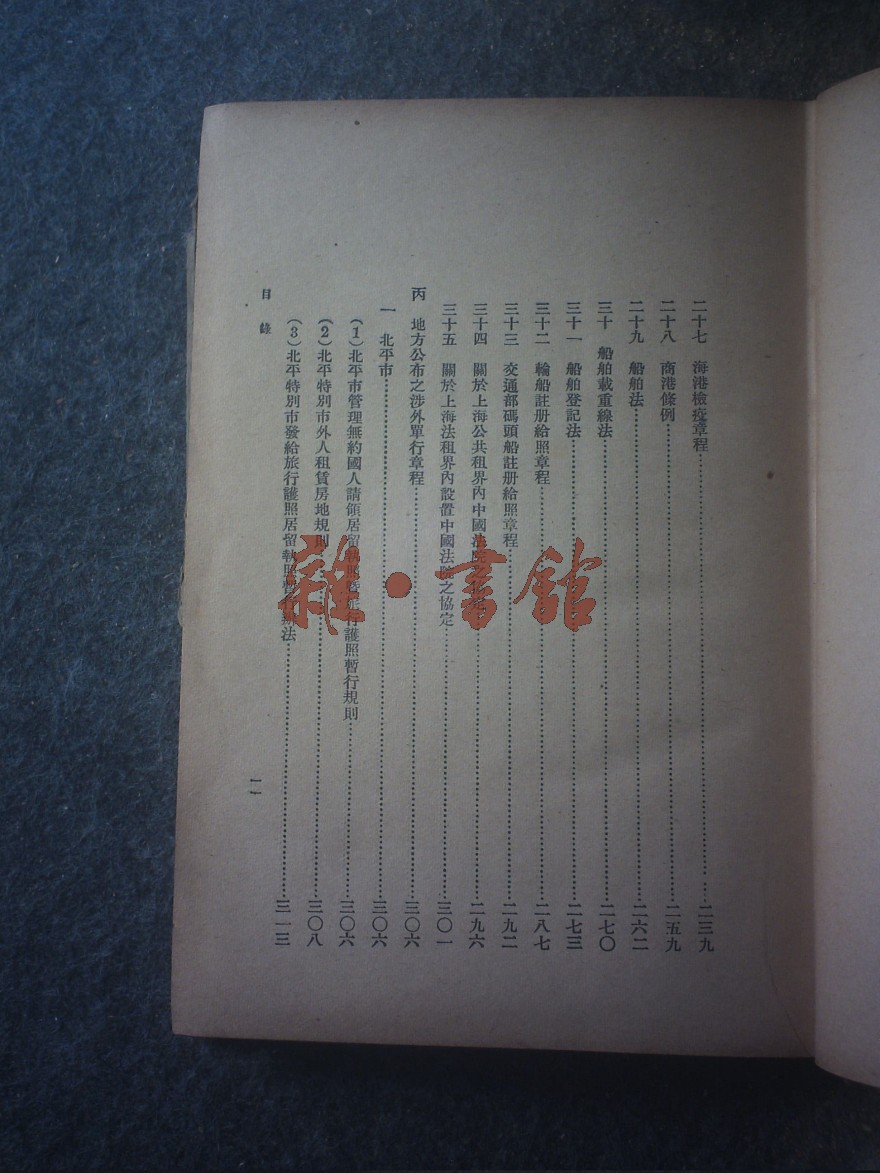 二十七　海港檢疫章程……二三九
二十八　商港條例……二五九
二十九　船舶法……二六二
三十　船舶載重線法……二七〇
三十一　船舶登記法……二七三
三十二　輪船註册給照章程……二八七
三十三　交通部碼頭船註册給照章程……二九二
三十四　關於上海公共租界內中國法院之協定……二九六
三十五　關於上海法租界內設置中國法院之協定……三〇一
丙　地方公布之涉外單行章程……三〇六
一　北平市……三〇六
(1)北平市管理無約國人請領居留執照暨旅行護照暫行規則……三〇六
(2)北平特別市外人租賃房地規則……三〇八
(3)北平特別市發給旅行護照居留執照暫行辦法……三一三
目錄
一一
雜·書館